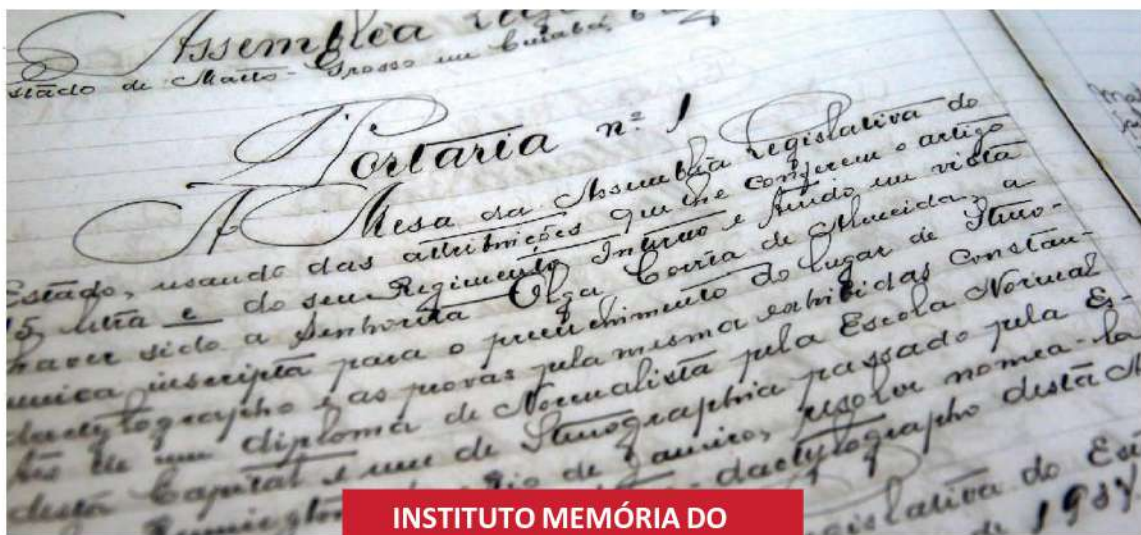 Assemblea
stado de Matto-Grosso em Cuiabá,
Portaria nº 1
A Mesa da Assembléa Legislativa do
Estado, usando das attribuições que lhe conferem o artigo
15, letra e do seu Regimento Interno e tendo em vista
haver sido a Senhorita Olga Corrêa de Almeida, a
unica inscripta para o preenchimento do lugar de Steno-
dactylographo e as provas pela mesma exhibidas constan-
tes de um diploma de Normalista pela Escola Normal
desta Capital e um de Stenographia passado pela Es-
Remington Rio de Janeiro, resolve nomea-la
dactylographo desta A
egislativa do Es
de 193
INSTITUTO MEMÓRIA DO